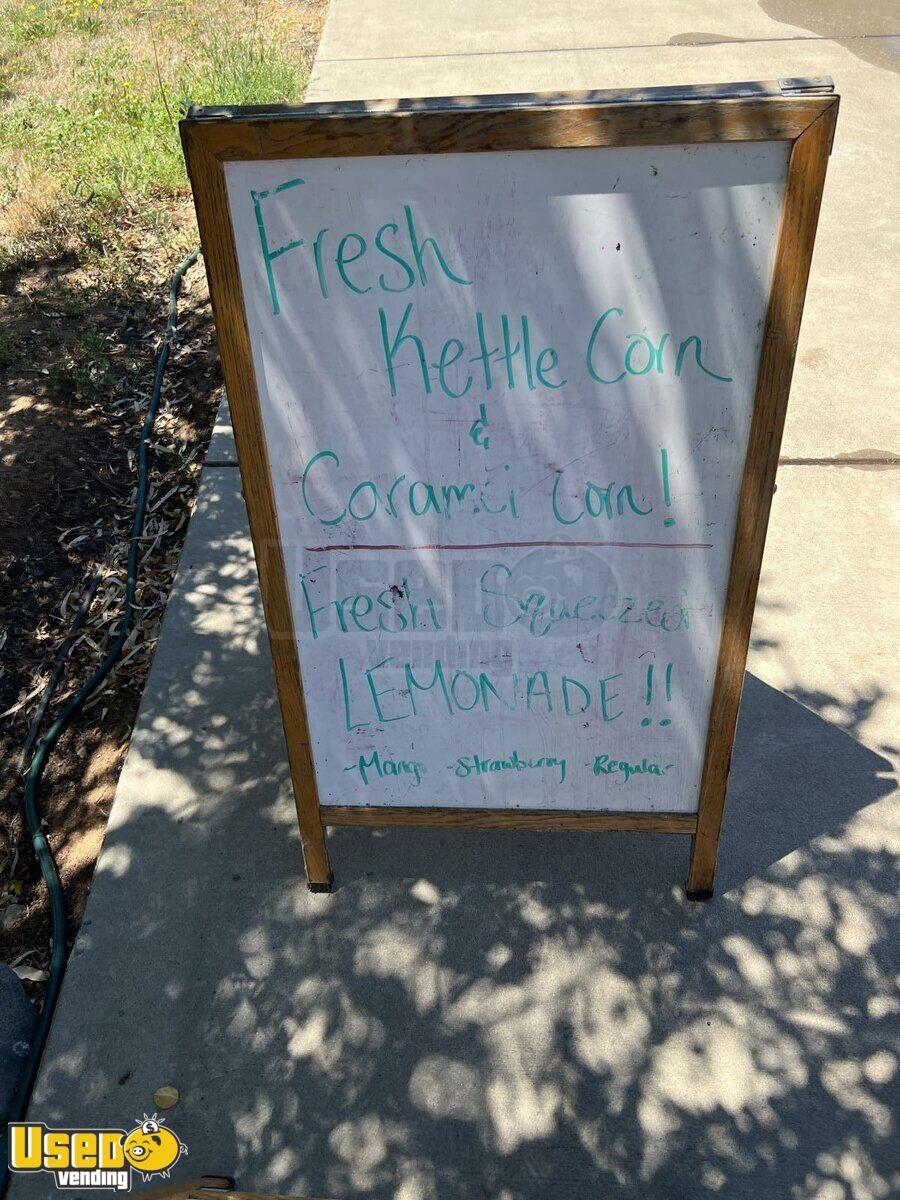 Fresh
Kettle Corn
&
Caramel Corn!
Fresh Squeezed
LEMONADE!!
-Mango -Strawberry -Regular
USED
vending
USED
vending